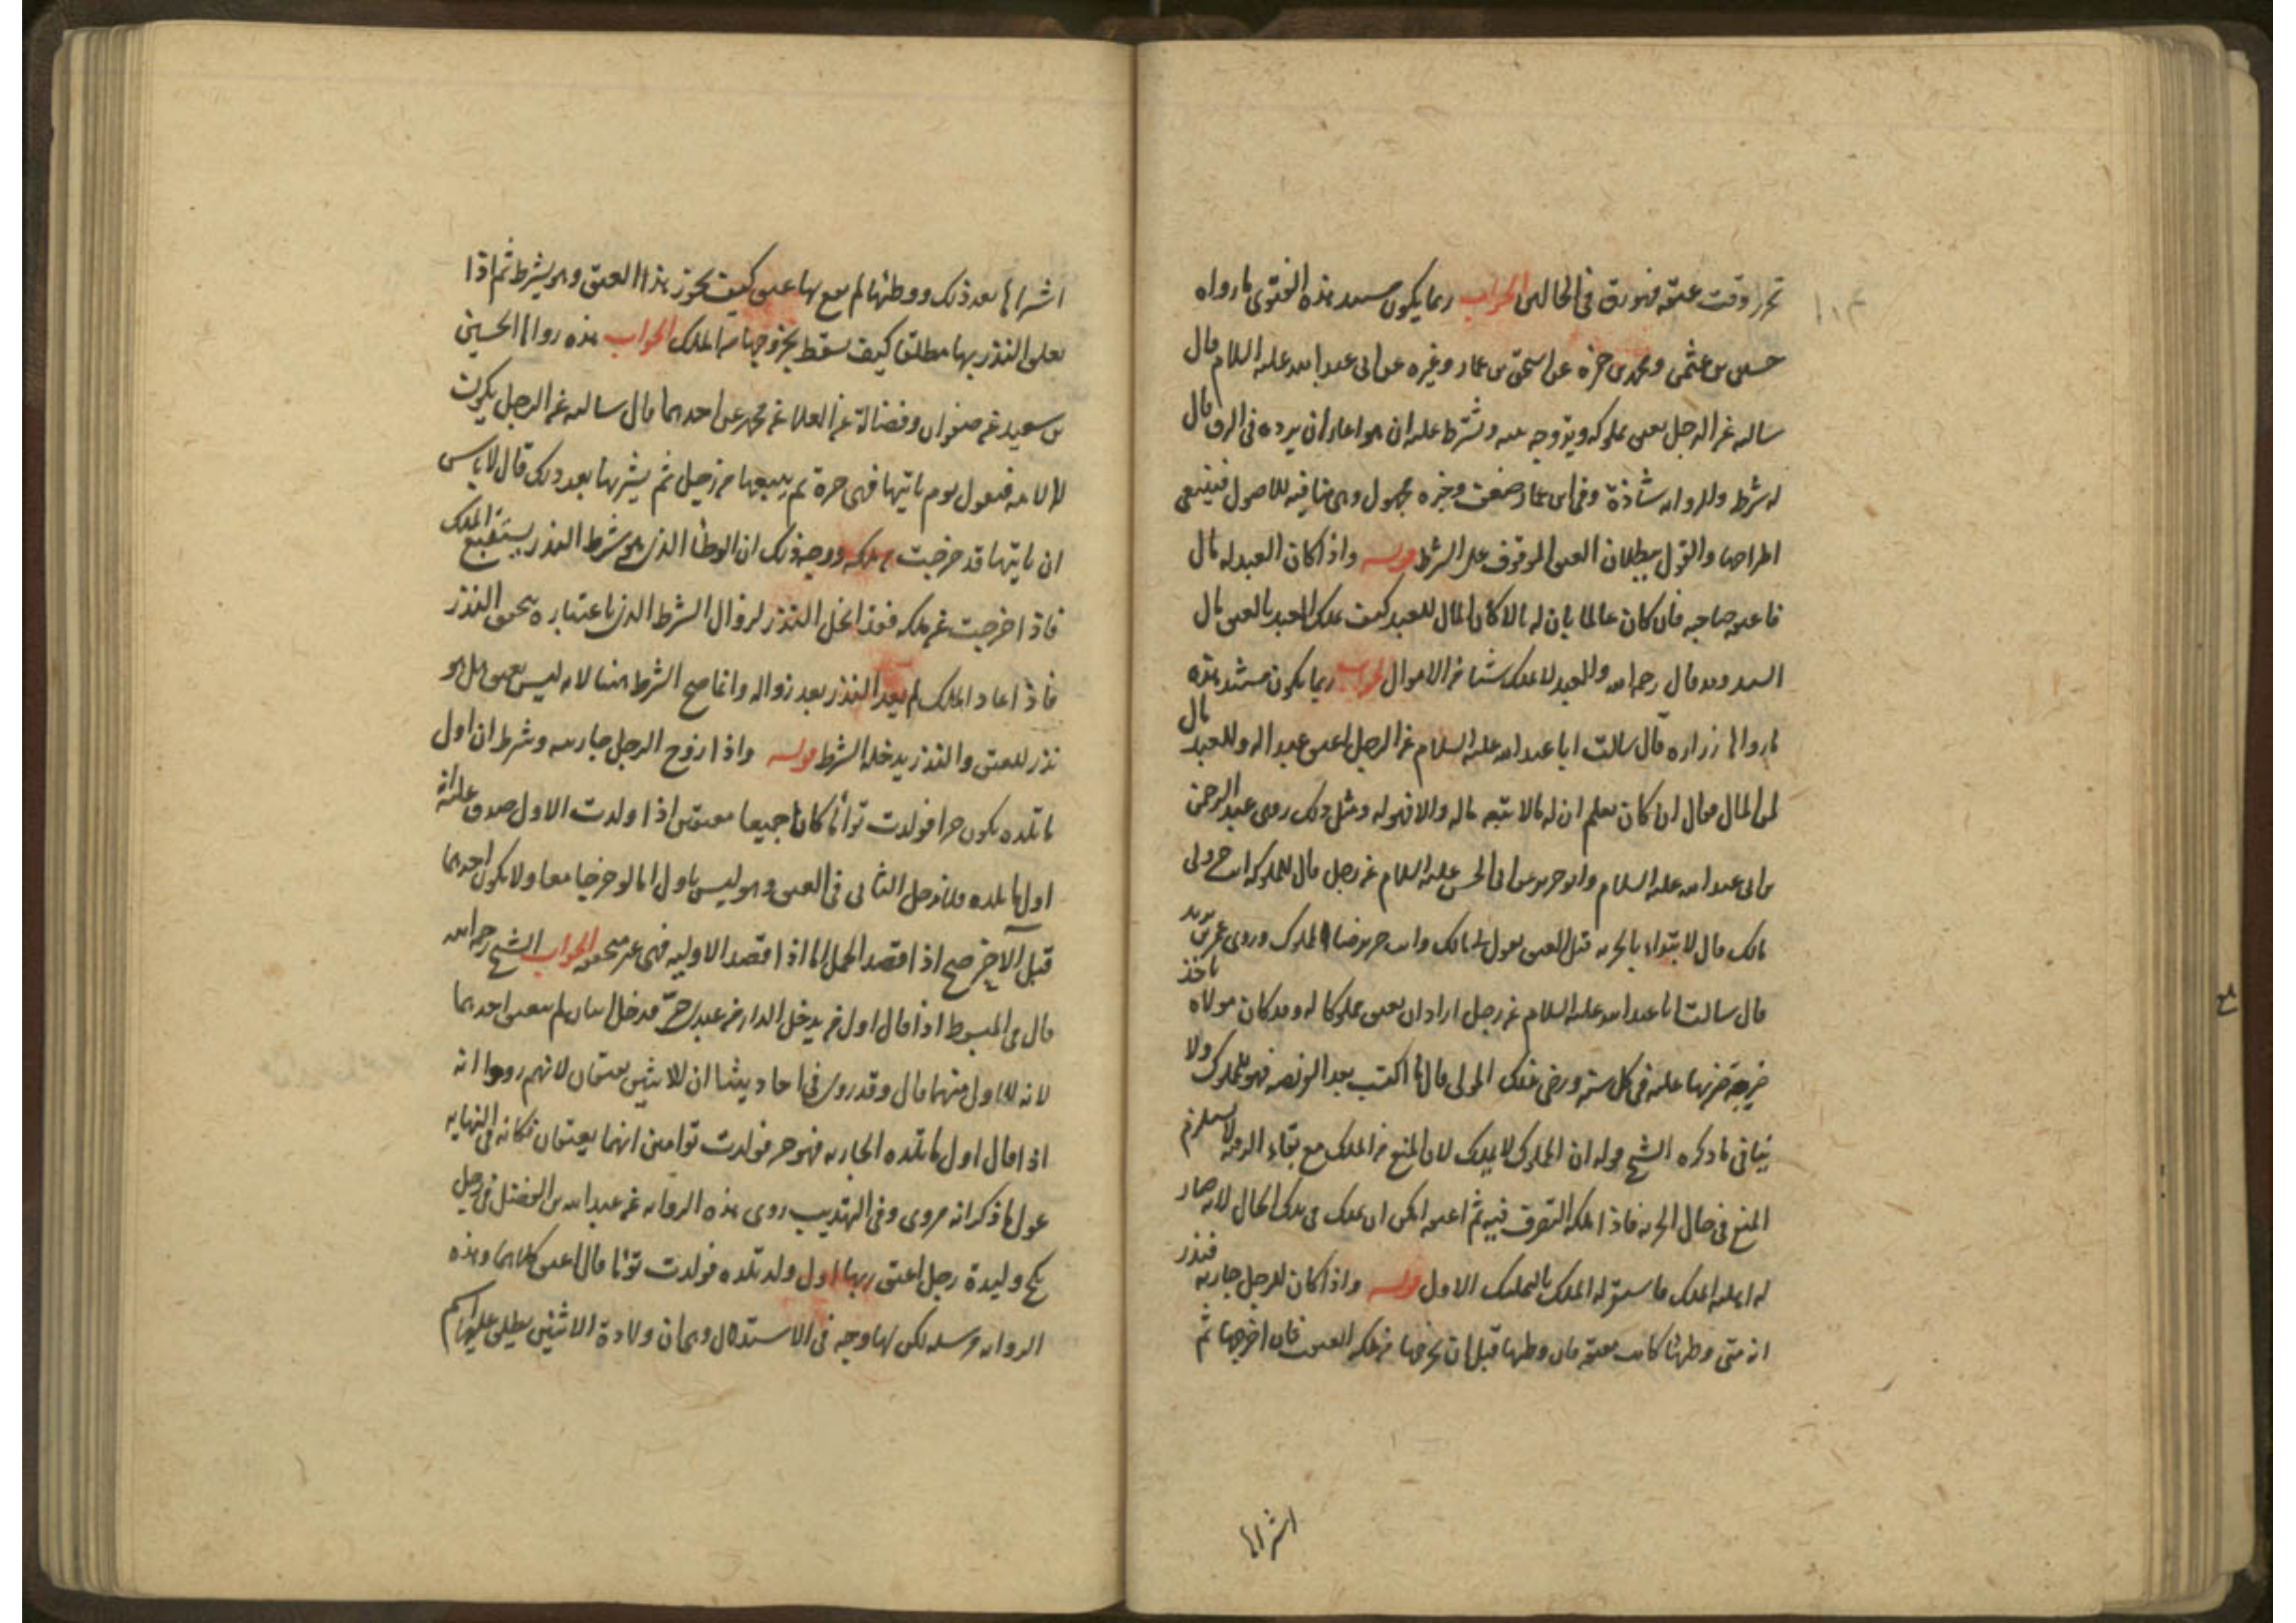 تحرر وقت عتقه فهو رق في الحالين الجواب ربما يكون مستند هذه الفتوى ما رواه
حسين بن عثمن ومحمد بن حمزه عن اسحق بن عمار وغيره عن ابي عبد الله عليه السلام قال
سالته عن الرجل يعتق مملوكه ويزوجه بنته ويشترط عليه ان هو اغارها ان يرده في الرق قال
له شرطه والروايه شاذة وفي ابن عمار ضعف وغيره مجهول وهي منافيه للاصول فينبغي
اطراحها والقول ببطلان العتق الموقوف على الشرط قوله واذا كان العبد له مال
فاعتقه صاحبه فان كان عالما بان له مالا كان المال للعبد كيف يملك العبد بالعتق مال
السيد وقد قال رحمه الله والعبد لا يملك شيئا من الاموال الجواب ربما يكون مستند هذه
ما رواه زراره قال سالت ابا عبد الله عليه السلام عن الرجل اعتق عبدا له وللعبد مال
لمن المال فقال ان كان يعلم ان له مالا تبعه ماله والا فهو له ومثل ذلك روى عبد الرحمن
بن ابي عبد الله عليه السلام وابو جرير عن ابي الحسن عليه السلام عن رجل قال لمملوكه انت حر ولي
مالك قال لا يبتداء بالحريه قبل العتق يقول لي مالك وانت حر برضا المملوك وروى عمر بن يزيد
قال سالت ابا عبد الله عليه السلام عن رجل اراد ان يعتق مملوكا له وقد كان مولاه ياخذ
ضريبة ضربها عليه في كل سنه ورضي بذلك المولى قال ما اكتسب بعد الفريضه فهو للمملوك ولا
ينافي ما ذكره الشيخ قوله ان المملوك لا يملك لان المنع من الملك مع بقاء الرقيه لا يستلزم
المنع في حال الحريه فاذا ملكه التصرف فيه ثم اعتقه امكن ان يملك في تلك الحال لانه صار
له اهليه الملك فاستقر له الملك بالتمليك الاول قوله واذا كان للرجل جاريه فنذر
انه متى وطئها كانت معتقه فان وطئها قبل ان يخرجها من ملكه انعتقت فان اخرجها ثم
اشتراها
اشتراها بعد ذلك ووطئها لم يقع بها عتق كيف يجوز هذا العتق وهو بشرط ثم اذا
تعلق النذر بها مطلقا كيف سقط بخروجها من الملك الجواب هذه رواها الحسين
بن سعيد عن صفوان وفضالة عن العلا عن محمد عن احدهما قال سالته عن الرجل يكون
له الامه فيقول يوم ياتيها فهي حرة ثم يبيعها من رجل ثم يشتريها بعد ذلك قال لا باس
ان ياتيها قد خرجت من ملكه ووجه ذلك ان الوطئ الذي هو شرط النذر يستتبع الملك
فاذا خرجت عن ملكه فقد انحل النذر لزوال الشرط الذي باعتباره يتحقق النذر
فاذا اعاد الملك لم يعد النذر بعد زواله وانما صح الشرط هنا لانه ليس بعتق بل هو
نذر للعتق والنذر يدخله الشرط قوله واذا زوج الرجل جاريته وشرط ان اول
ما تلده يكون حرا فولدت توأما كانا جميعا معتوقين اذا ولدت الاول صدق عليه انه
اول ما تلده فلا يدخل الثاني في العتق وهو ليس باول اما لو خرجا معا ولا يكون احدهما
قبل الآخر صح اذا قصد الحمل اما اذا قصد الاوليه فهي غير متحققه الجواب الشيخ رحمه الله
قال في المبسوط اذا قال اول من يدخل الدار من عبيدي حر فدخل اثنان لم يعتق احدهما
لانه لا اول منهما قال وقد روى في احاديثنا ان الاثنين يعتقان لانهم رووا انه
اذا قال اول ما تلده الجاريه فهو حر فولدت توامين انهما يعتقان فكانه في النهايه
عول ما ذكر انه مروى وفي التهذيب روى هذه الروايه عن عبد الله بن الفضل في رجل
نكح وليدة رجل اعتق ربها اول ولد تلده فولدت توأما قال اعتق كلاهما وهذه
الروايه مرسله لكن لها وجه في الاستدلال وهو ان ولادة الاثنين يطلق عليهما اسم